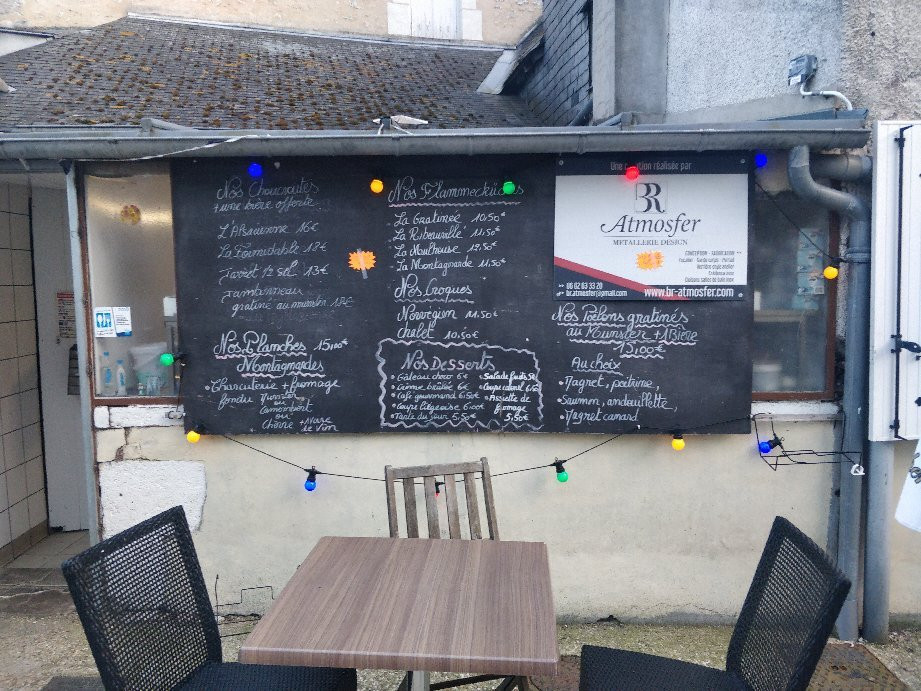 Nos Choucroutes
+ une bière offerte
L'Alsacienne 16€
La Formidable 18€
Jarret 1/2 sel 13€
Jambonneau
gratiné au munster 18€
Nos Planches 15,00€
Montagnardes
• Charcuterie + fromage
fondu Munster
ou
Camembert
ou
Chèvre
Nos Flammeckües
La Gratinée 10,50€
La Ribeauvillé 11,50€
La Mulhouse 12,50€
La Montagnarde 11,50€
Nos Croques
Norvegien 11,50€
chalet 10,50€
Nos Desserts
• Gâteau choco 6€
• Crème brûlée 6€
• Café gourmand 6,50€
• Coupe Liégeoise 6,00€
• Tarte du jour 5,50€
• Salade fruits 5€
• Assiette de
fromage
5,50€
Une création réalisée par
BR
Atmosfer
METALLERIE DESIGN
CONCEPTION - FABRICATION
>> 06 02 63 33 20
br.atmosfer@gmail.com
>>> www.br-atmosfer.com
Nos Poêlons gratinés
au Munster + 1 Bière
15,00€
Au choix
• Magret, poitrine,
• Saumon, andouillette,
• Magret canard